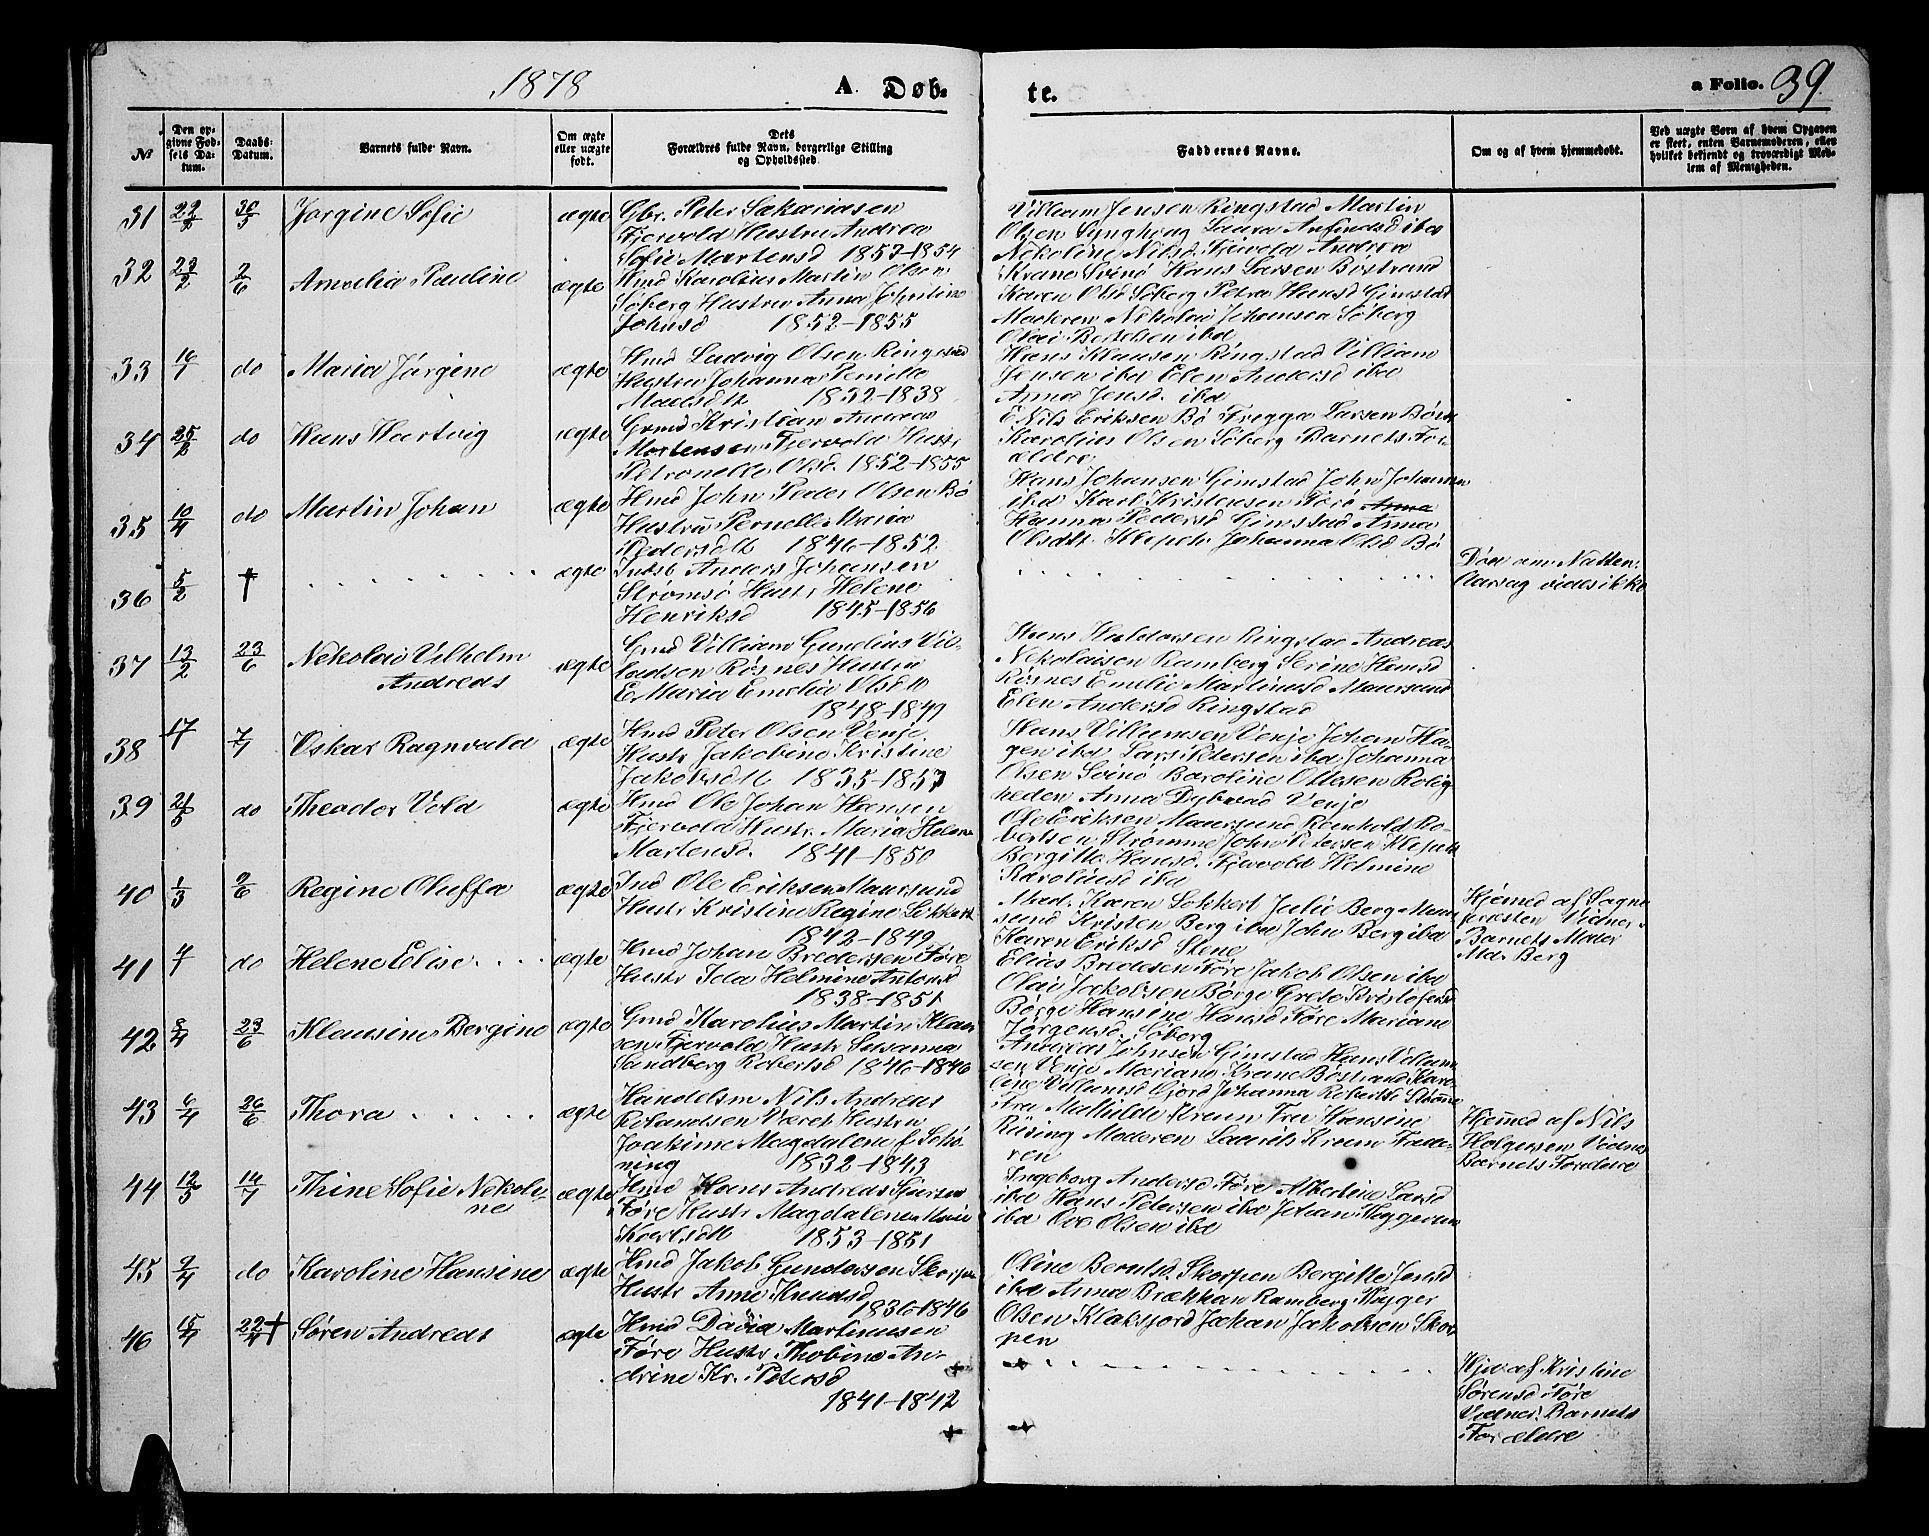 1878
A. Døb-
te.
a Folio. 39
№
Den op-
givne Fød-
sels Da-
tum.
Daabs-
Datum.
Barnets fulde Navn.
Om ægte
eller uægte
født.
Dets
Forældres fulde Navn, borgerlige Stilling
og Opholdssted.
Faddernes Navne.
Om og af hvem hjemmedøbt.
Ved uægte Børn af hvem Opgaven
er skeet, enten Barnemoderen, eller
hvilket bekjendt og troværdigt Med-
lem af Menigheden.
31 Jørgine Sofie ægte Gbr. Peter Sakariasen
Fjervold Hustru Andrea
Sofie Martensd 1853-1854
Villiam Jensen Ringstad Martin
Olsen Laura ibd
Nekoline Nilsd Fjervold Andrea
32 23/2 2/6 Amelia Pauline ægte Hmd Karolius Martin Olsen
Søberg Hustru Anna
Johnsd 1852-1855
Krane Svinø Hans Larsen Bøstrand
Karen Olsd Søberg Petra Hansd Gimstad
Nekolai Johansen Søberg
Olai ibd
33 do Maria Jørgine ægte Hmd Ludvig Olsen Ringstad
Hustru Johanna Pernille
1852-1838
Hans Klausen Ringstad Villiam
Jensen ibd Elen Andersd ibd
Anna Jensd. ibd
34 25/2 do Hans Hartvig ægte Gmd Kristian Andreas
Mortensen Fjervold Hustr
Petronelle Olsd. 1852-1855
Nils Eriksen Bø Fregga Larsen
Karolius Olsen Søberg Barnets For-
ældre
35 10/4 do Martin Johan ægte Hmd John Peder Olsen Bø
Hustru Pernelle Maria
Pedersdtr 1846-1852
Hans Johansen Gimstad John Johansen
ibd Karl Kristensen Førø Anna
Hanna Pedersd Gimstad Anna
Olsdtr. Johanna Olsd Bø
36 5/2 † . . . . . . . . ægte Indsb Anders Johansen
Strømsø Hustr Helene
Henriksd 1845-1856
. . . . . . . .
Død om Natten.
Aarsag vides ikke
37 13/2 23/6 Nekolai Vilhelm
Andreas
ægte Gmd Villiam Gunelius Vil-
ladsen Røsnes Hustru
Maria Emelia Olsdtr
1848-1849
Hans Haldorsen Ringstad Andreas
Nekolaisen Ramberg Serine Hansd
Røsnes Emelie Martinusd Maursund
Elen Andersd Ringstad
38 7/7 Oskar Ragnvald ægte Hmd Peter Olsen Venje
Hustr Jakobine Kristine
Jakobsdtr 1835-1857
Hans Villumsen Venje Johan Ha-
gen ibd Lars Petersen ibd Johanna
Olsen Svinø Baroline Ottesen Rolig-
heden Anna Dybvad Venje
39 do Theodor Vold ægte Hmd Ole Johan Hansen
Fjervold Hustr Maria Helene
Martensd. 1841-1850
Ole Eriksen Maursund Reinhold Ro-
bertsen Strømme John Petersen
Bergitte Hansd. Fjervold Helmine
Karoliusd ibd
40 1/3 2/6 Regine Oluffa ægte Ind Ole Eriksen Maursund
Hustr Kristine Regine Lokkert
1842-1849
Mad. Karen Lokkert Julie Berg Maur-
sund Kristen Berg ibd John Berg ibd
Karen Eriksd Stene
Hjemed af Sogne-
præsten Vidner.
Barnets Moder
Md. Berg
41 do Helene Elise . . . . ægte Hmd Johan Bredesen Føre
Hustr Ida Helmine Antonsd
1838-1851
Elias Bredesen Føre Jakob Olsen ibd
Olai Jakobsen Børge Grete Kristofersd
Børge Hansine Hansd Føre Mariane
Jørgensd. Søberg
42 23/6 Klausine Bergine ægte Gmd Karolius Martin Klau-
sen Fjervold Hustr Susanna
Sandberg Robertsd 1846-1846
Andreas Johnsen Gimstad Hans Villum-
sen Venje Mariane Krane Bøstrand Karo-
line Villumsd Gjord Johanna Robertsd Strømme
43 6/4 26/6 Thora . . . . . ægte Handelsm Nils Andreas
Rolandsen Været Hustru
Joakime Magdalene f. Schø-
ning 1832-1843
Fru Mathilde Krum Fru Hansine
Rusing Moderen Laurits Krum Fade-
ren
Hjemed af Nils
Holgersen Vidner
Barnets Forældre
44 12/5 14/7 Thine Sofie Nekoli-
ne
ægte Hmd Hans Andreas Sjursen
Føre Hustr Magdalene Marie
Karlsdtr 1853-1851
Ingeborg Andersd Føre Albertine Larsd
ibd Hans Petersen ibd Johan
ibd Ove Olsen ibd
45 2/4 do Karoline Hansine ægte Hmd Jakob Gundersen Skorpen
Hustr Anne Knudsd
1836-1846
Oline Berntsd. Skorpen Bergitte Jensd
ibd Anna Brækkan Ramberg Hegger
Olsen Klaksjord Johan Jakobsen Skor-
pen
46 † Søren Andreas ægte Hmd David Martinusen
Føre Hustr Thobine An-
drine Kr. Petersd
1841-1842
. . . . . . . .
Hjd af Kristine
Sørensd Føre
Vidner: Barnets
Forældre